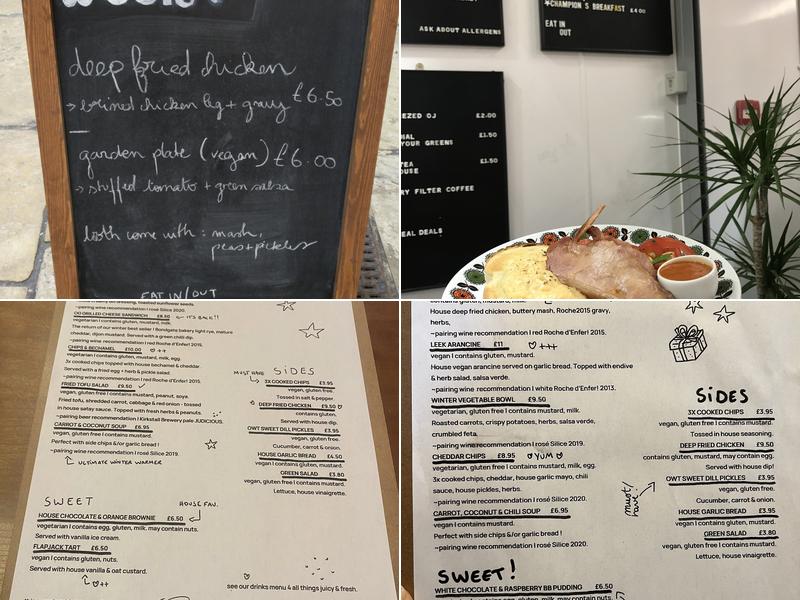 deep fried chicken
→ brined chicken leg + gravy £6.50
garden plate (vegan) £6.00
→ stuffed tomato + green salsa
both come with: mash,
peas + pickles
EAT IN/OUT
ASK ABOUT ALLERGENS
★CHAMPION S BREAKFAST £4 00
EAT IN
OUT
EZED OJ £2.00
£1.50
YOUR GREENS
TEA £1.50
HOUSE
RY FILTER COFFEE
EAL DEALS
~pairing wine recomendation I rosé Silice 2020.
OG GRILLED CHEESE SANDWICH £8.50 ← IT'S BACK!!
vegetarian I contains gluten, mustard, milk.
The return of our winter best seller ! Bondgate bakery light rye, mature
cheddar, dijon mustard. Served with a green chilli dip.
~pairing wine recomendation I red Roche d'Enfer! 2015.
CHIPS & BECHAMEL £10.00 ♡ ++
vegetarian I contains gluten, mustard, milk, egg.
3x cooked chips topped with house bechamel & cheddar.
Served with a fried egg + herb & pickle salad.
~pairing wine recomendation I red Roche d'Enfer! 2015.
FRIED TOFU SALAD £9.50
vegan, gluten free I contains mustard, peanut, soya.
Fried tofu, shredded carrot, cabbage & red onion - tossed
in house satay sauce. Topped with fresh herbs & peanuts.
~pairing beer recomendation I Kirkstall Brewery pale JUDICIOUS.
CARROT & COCONUT SOUP £6.95
vegan, gluten free I contains mustard.
Perfect with side chips &/or garlic bread !
~pairing wine recomendation I rosé Silice 2019.
ULTIMATE WINTER WARMER
MUST HAVE
SIDES
3X COOKED CHIPS £3.95
vegan, gluten free.
Tossed in salt & pepper.
DEEP FRIED CHICKEN £9.50
contains gluten.
Served with house dip.
OWT SWEET DILL PICKLES £3.95
vegan, gluten free.
Cucumber, carrot & onion.
HOUSE GARLIC BREAD £4.50
vegan I contains gluten, mustard.
GREEN SALAD £3.80
vegan, gluten free I contains mustard.
Lettuce, house vinaigrette.
SWEET
HOUSE FAV.
HOUSE CHOCOLATE & ORANGE BROWNIE £6.50
vegetarian I contains egg, gluten, milk, may contain nuts.
Served with vanilla ice cream.
FLAPJACK TART £6.50
vegan I contains gluten, nuts.
Served with house vanilla & oat custard.
♡++
see our drinks menu 4 all things juicy & fresh.
House deep fried chicken, buttery mash, Roche2015 gravy,
herbs.
~pairing wine recommendation I red Roche d'Enfer! 2015.
LEEK ARANCINE £11 ♡ +++
vegan I contains gluten, mustard.
House vegan arancine served on garlic bread. Topped with endive
& herb salad, salsa verde.
~pairing wine recommendation I white Roche d'Enfer! 2013.
WINTER VEGETABLE BOWL £9.50
vegetarian, gluten free I contains mustard, milk.
Roasted carrots, crispy potatoes, herbs, salsa verde,
crumbled feta.
~pairing wine recomendation I rosé Silice 2019.
CHEDDAR CHIPS £8.95 ♡YUM♡
vegetarian, gluten free I contains mustard, milk, egg.
3x cooked chips, cheddar, house garlic mayo, chili
sauce, house pickles, herbs.
~pairing wine recomendation I rosé Silice 2020.
CARROT, COCONUT & CHILI SOUP £6.95
vegan I contains mustard.
Perfect with side chips &/or garlic bread !
~pairing wine recomendation I rosé Silice 2020.
SIDES
3X COOKED CHIPS £3.95
vegan, gluten free I contains mustard.
Tossed in house seasoning.
DEEP FRIED CHICKEN £9.50
contains gluten, mustard, may contain egg.
Served with house dip!
must/have!
OWT SWEET DILL PICKLES £3.95
vegan, gluten free.
Cucumber, carrot & onion.
HOUSE GARLIC BREAD £3.95
vegan I contains gluten, mustard.
GREEN SALAD £3.80
vegan, gluten free I contains mustard.
Lettuce, house vinaigrette.
SWEET!
WHITE CHOCOLATE & RASPBERRY BB PUDDING £6.50